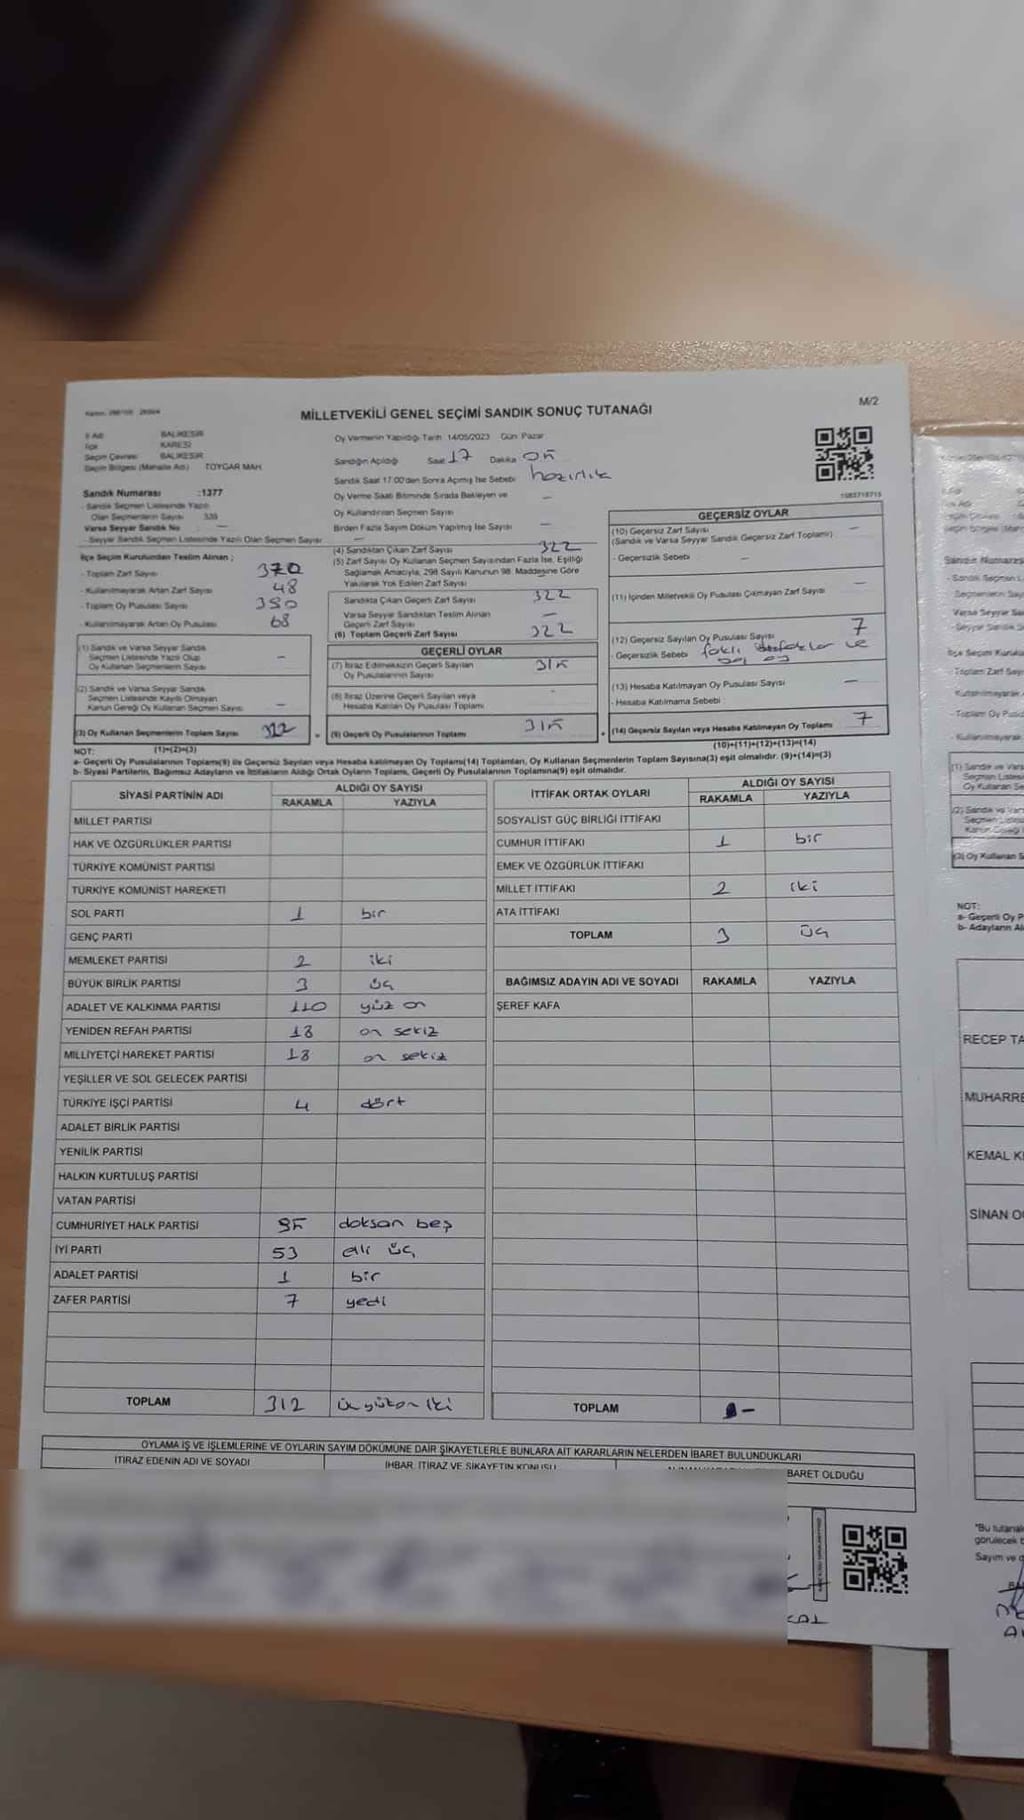 M/2
MİLLETVEKİLİ GENEL SEÇİMİ SANDIK SONUÇ TUTANAĞI
İl Adı BALIKESİR
İlçe KARESİ
Seçim Çevresi BALIKESİR
Seçim Bölgesi (Mahalle Adı) TOYGAR MAH.
Sandık Numarası :1377
- Sandık Seçmen Listesinde Yazılı
Olan Seçmenlerin Sayısı
Varsa Seyyar Sandık No —
- Seyyar Sandık Seçmen Listesinde Yazılı Olan Seçmen Sayısı —
Oy Vermenin Yapıldığı Tarih 14/05/2023 Gün Pazar
Sandığın Açıldığı Saat 17 Dakika
Sandık Saat 17.00'den Sonra Açılmış İse Sebebi hazırlık
Oy Verme Saati Bitiminde Sırada Bekleyen ve
Oy Kullandırılan Seçmen Sayısı —
Birden Fazla Sayım Döküm Yapılmış İse Sayısı —
İlçe Seçim Kurulundan Teslim Alınan ;
- Toplam Zarf Sayısı 370
- Kullanılmayarak Artan Zarf Sayısı 48
- Toplam Oy Pusulası Sayısı
- Kullanılmayarak Artan Oy Pusulası 68
(1) Sandık ve Varsa Seyyar Sandık
Seçmen Listesinde Yazılı Olup
Oy Kullanan Seçmenlerin Sayısı -
(2) Sandık ve Varsa Seyyar Sandık
Seçmen Listesinde Kayıtlı Olmayan
Kanun Gereği Oy Kullanan Seçmen Sayısı -
(3) Oy Kullanan Seçmenlerin Toplam Sayısı 322
(1)+(2)=(3)
(4) Sandıktan Çıkan Zarf Sayısı 322
(5) Zarf Sayısı Oy Kullanan Seçmen Sayısından Fazla İse, Eşitliği
Sağlamak Amacıyla, 298 Sayılı Kanunun 98. Maddesine Göre
Yakılarak Yok Edilen Zarf Sayısı
Sandıkta Çıkan Geçerli Zarf Sayısı 322
Varsa Seyyar Sandıktan Teslim Alınan
Geçerli Zarf Sayısı —
(6) Toplam Geçerli Zarf Sayısı 322
GEÇERLİ OYLAR
(7) İtiraz Edilmeksizin Geçerli Sayılan
Oy Pusulasının Sayısı 315
(8) İtiraz Üzerine Geçerli Sayılan veya
Hesaba Katılan Oy Pusulası Toplamı -
(9) Geçerli Oy Pusulalarının Toplamı 315
GEÇERSİZ OYLAR
(10) Geçersiz Zarf Sayısı —
(Sandık ve Varsa Seyyar Sandık Geçersiz Zarf Toplamı)
- Geçersizlik Sebebi —
(11) İçinden Milletvekili Oy Pusulası Çıkmayan Zarf Sayısı —
(12) Geçersiz Sayılan Oy Pusulası Sayısı 7
- Geçersizlik Sebebi ve
(13) Hesaba Katılmayan Oy Pusulası Sayısı —
- Hesaba Katılmama Sebebi
(14) Geçersiz Sayılan veya Hesaba Katılmayan Oy Toplamı 7
(10)+(11)+(12)+(13)=(14)
NOT:
a- Geçerli Oy Pusulalarının Toplamı(9) ile Geçersiz Sayılan veya Hesaba katılmayan Oy Toplamı(14) Toplamları, Oy Kullanan Seçmenlerin Toplam Sayısına(3) eşit olmalıdır. (9)+(14)=(3)
b- Siyasi Partilerin, Bağımsız Adayların ve İttifakların Aldığı Ortak Oyların Toplamı, Geçerli Oy Pusulalarının Toplamına(9) eşit olmalıdır.
SİYASİ PARTİNİN ADI ALDIĞI OY SAYISI
RAKAMLA YAZIYLA
MİLLET PARTİSİ
HAK VE ÖZGÜRLÜKLER PARTİSİ
TÜRKİYE KOMÜNİST PARTİSİ
TÜRKİYE KOMÜNİST HAREKETİ
SOL PARTİ 1 bir
GENÇ PARTİ
MEMLEKET PARTİSİ 2 iki
BÜYÜK BİRLİK PARTİSİ 3 üç
ADALET VE KALKINMA PARTİSİ 110 yüz on
YENİDEN REFAH PARTİSİ 18 on sekiz
MİLLİYETÇİ HAREKET PARTİSİ 18 on sekiz
YEŞİLLER VE SOL GELECEK PARTİSİ
TÜRKİYE İŞÇİ PARTİSİ 4 dört
ADALET BİRLİK PARTİSİ
YENİLİK PARTİSİ
HALKIN KURTULUŞ PARTİSİ
VATAN PARTİSİ
CUMHURİYET HALK PARTİSİ 95 doksan beş
İYİ PARTİ 53 elli üç
ADALET PARTİSİ 1 bir
ZAFER PARTİSİ 7 yedi
TOPLAM 312 üçyüzon iki
İTTİFAK ORTAK OYLARI ALDIĞI OY SAYISI
RAKAMLA YAZIYLA
SOSYALİST GÜÇ BİRLİĞİ İTTİFAKI
CUMHUR İTTİFAKI 1 bir
EMEK VE ÖZGÜRLÜK İTTİFAKI
MİLLET İTTİFAKI 2 iki
ATA İTTİFAKI
TOPLAM 3 üç
BAĞIMSIZ ADAYIN ADI VE SOYADI RAKAMLA YAZIYLA
ŞEREF KAFA
TOPLAM -
OYLAMA İŞ VE İŞLEMLERİNE VE OYLARIN SAYIM DÖKÜMÜNE DAİR ŞİKAYETLERLE BUNLARA AİT KARARLARIN NELERDEN İBARET BULUNDUKLARI
İTİRAZ EDENİN ADI VE SOYADI İHBAR, İTİRAZ VE ŞİKAYETİN KONUSU BARET OLDUĞU
NOT:
a- Geçerli Oy P
b- Adayların Al
RECEP TA
MUHARRE
KEMAL K
SİNAN O
*Bu tutanak
görülecek b
Sayım ve d